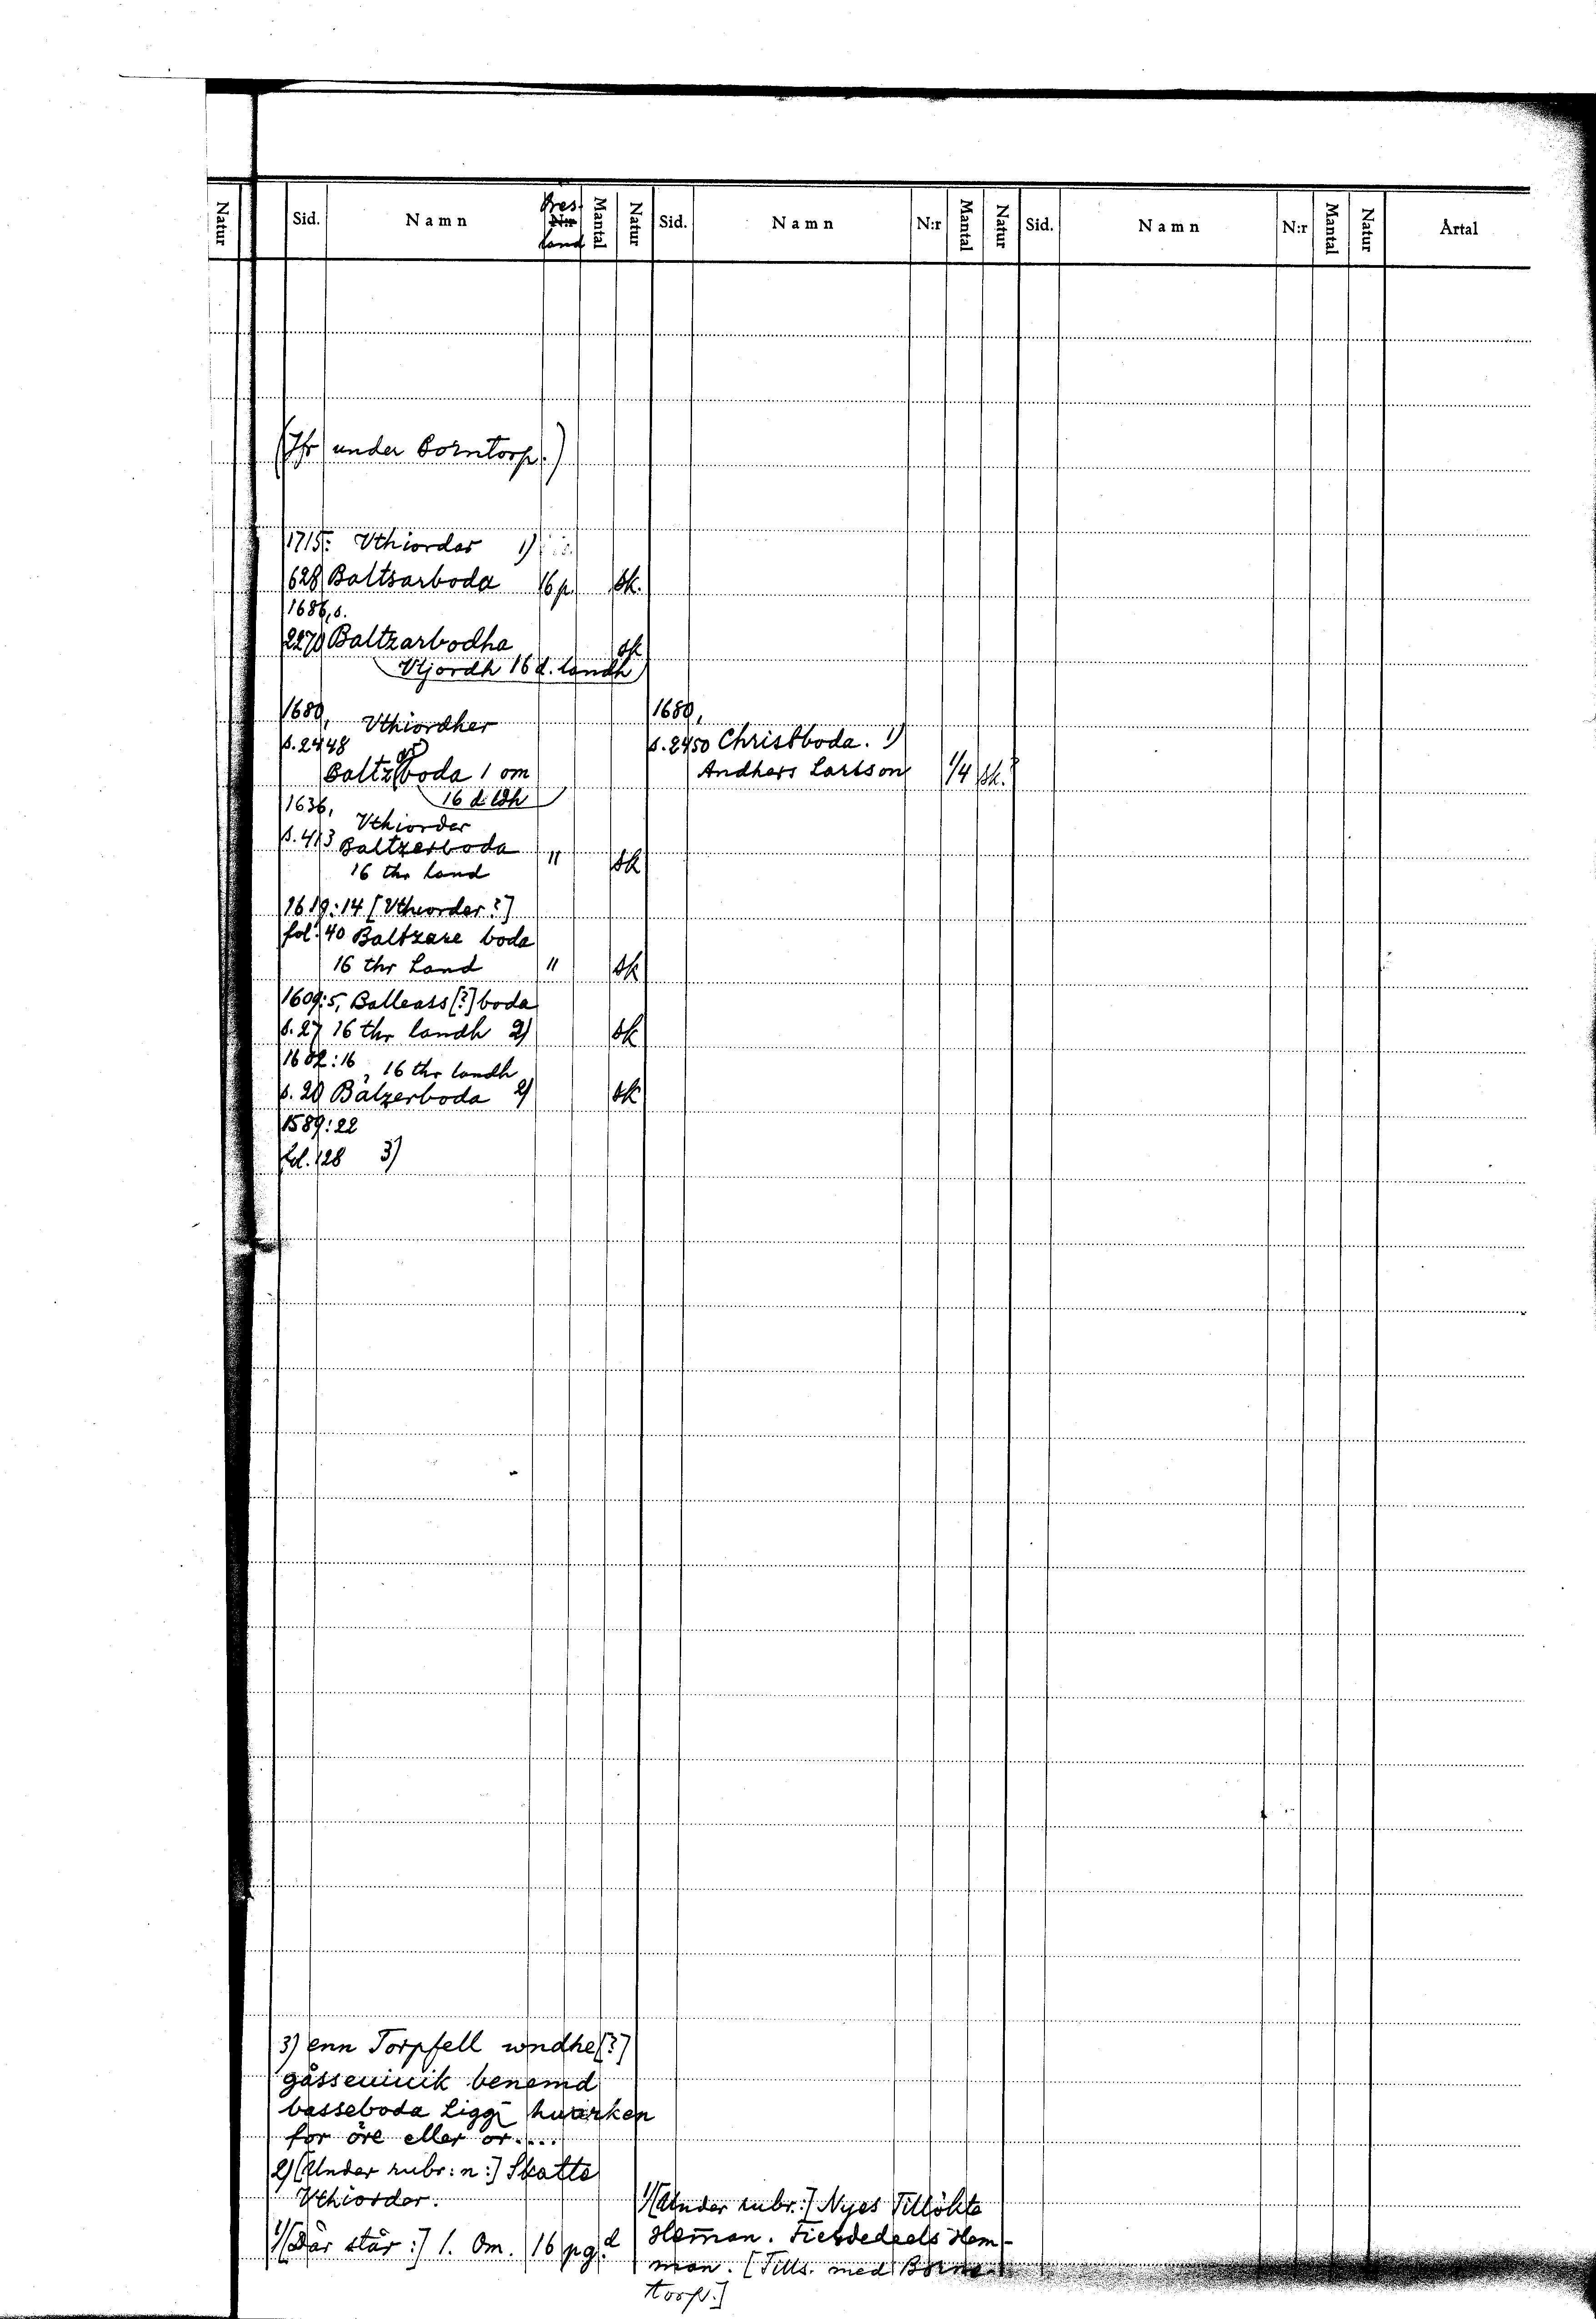 Natur Sid. Namn Öres N:r land Mantal Natur Sid. Namn N:r Mantal Natur Sid. Namn N:r Mantal Natur Årtal
(Jfr under Borntorp.)
1715: Vthiordar 1)
628 Baltsarboda 16 p. sk.
1686, s.
2270 Baltzarbodha sk
Vtjordh 16 d. landh
1680, Vthiordher
s. 2448
Baltzarboda 1 om
16 d. ldh
1636, Vthiorder
s. 413 Baltzerboda " sk
16 thr land
1619:14 [Vtheorder?]
fol. 40 Baltzare boda
16 thr Land " sk
1609:5, Balleass[?]boda
s. 27 16 thr landh 2) sk
1602:16, 16 thr landh
s. 20 Bälzerboda 2) sk
1589:22
fol. 128 3)
1680,
s. 2450 Christboda. 1)
Andhers Larsson 1/4 sk.
3) enn Torpfell wndhe[?]
gåsseuiuik benemd
basseboda Ligg huarken
for öre eller ör....
2) [Under rubr:n:] Skatte
Vthiorder.
1) [Där står:] 1. Om. 16 pg. d
1) [Under rubr.:] Nyes Tillökte
Heman. Fierdedeels Hem-
man. [Tills. med Borns-
torp.]